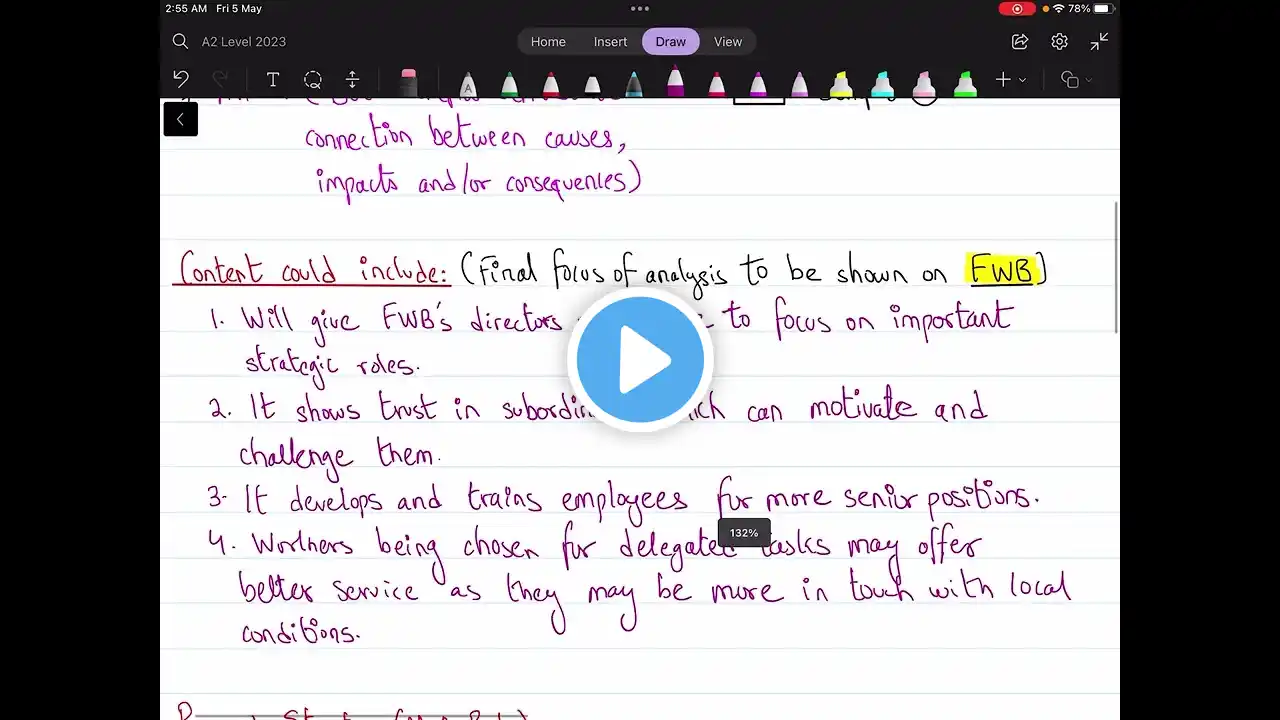 2:55 AM Fri 5 May
78%
A2 Level 2023
Home Insert Draw View
T
A
connection between causes,
impacts and/or consequences)
Content could include: (Final focus of analysis to be shown on FWB)
1. Will give FWB's directors to focus on important
strategic roles.
2. It shows trust in can motivate and
challenge them.
3- It develops and trains employees for more senior positions.
132%
4. Workers being chosen for delegated tasks may offer
better service as they may be more in touch with local
conditions.